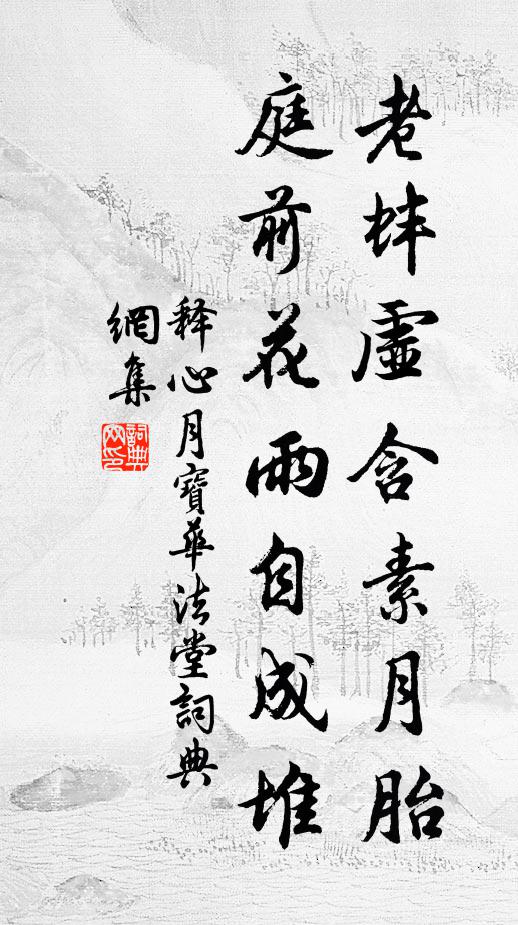 老蚌虛含素月胎
庭前花雨自成堆
释心月寶華法堂詞典
網集
詞典
网印